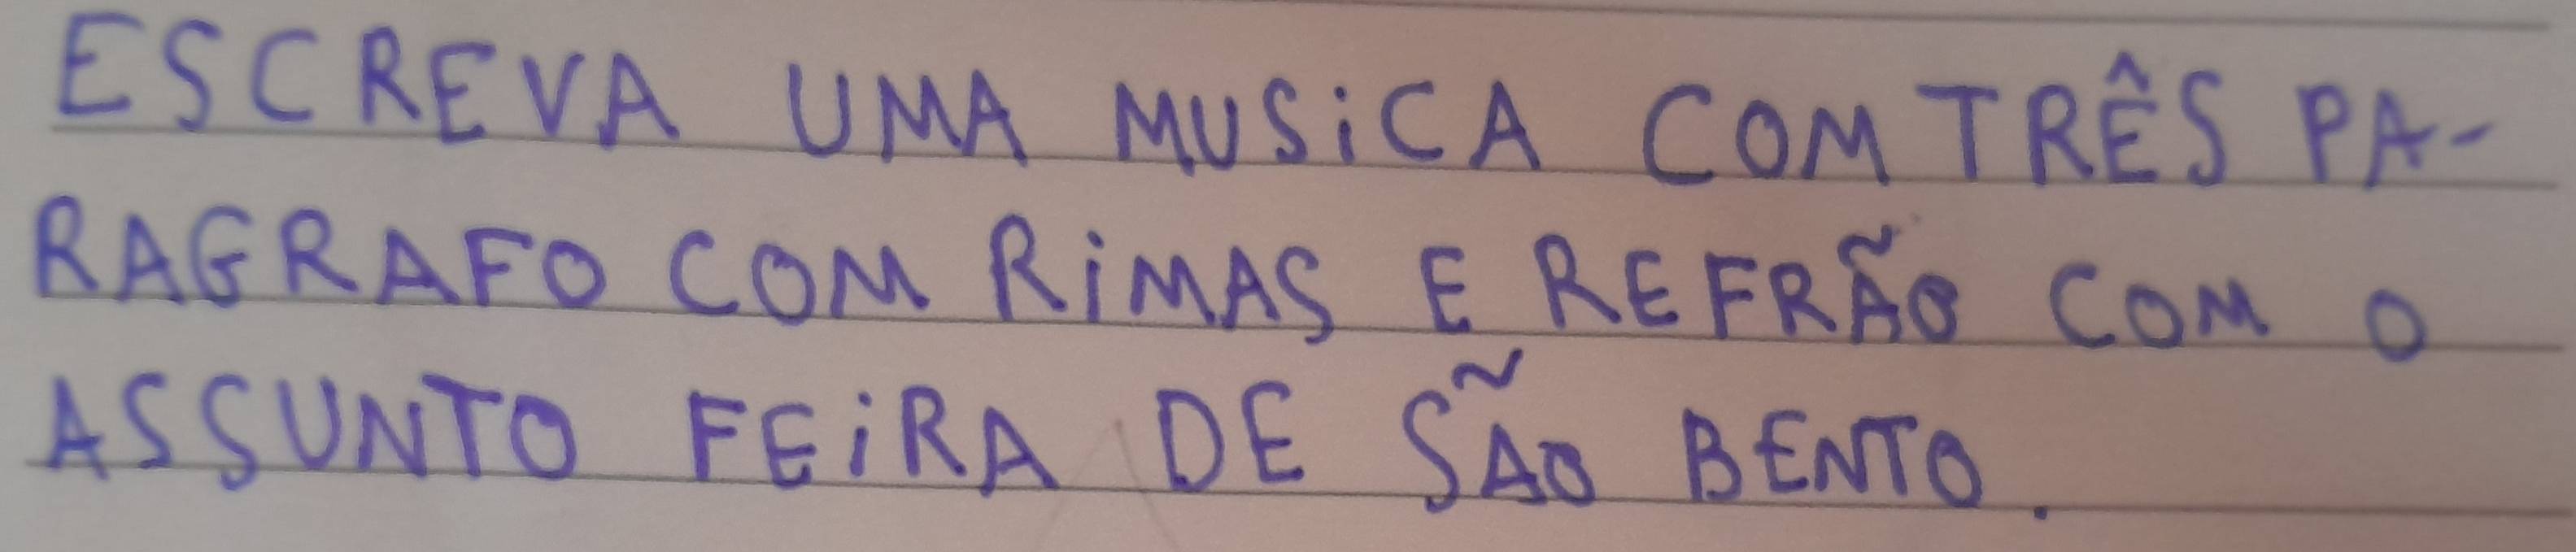 ESCREVA UMA MUSiCA COM TRÊS PA-
RAGRAFO COM RiMAS E REFRÃO COM O
ASSUNTO FEiRA DE SÃO BENTO.